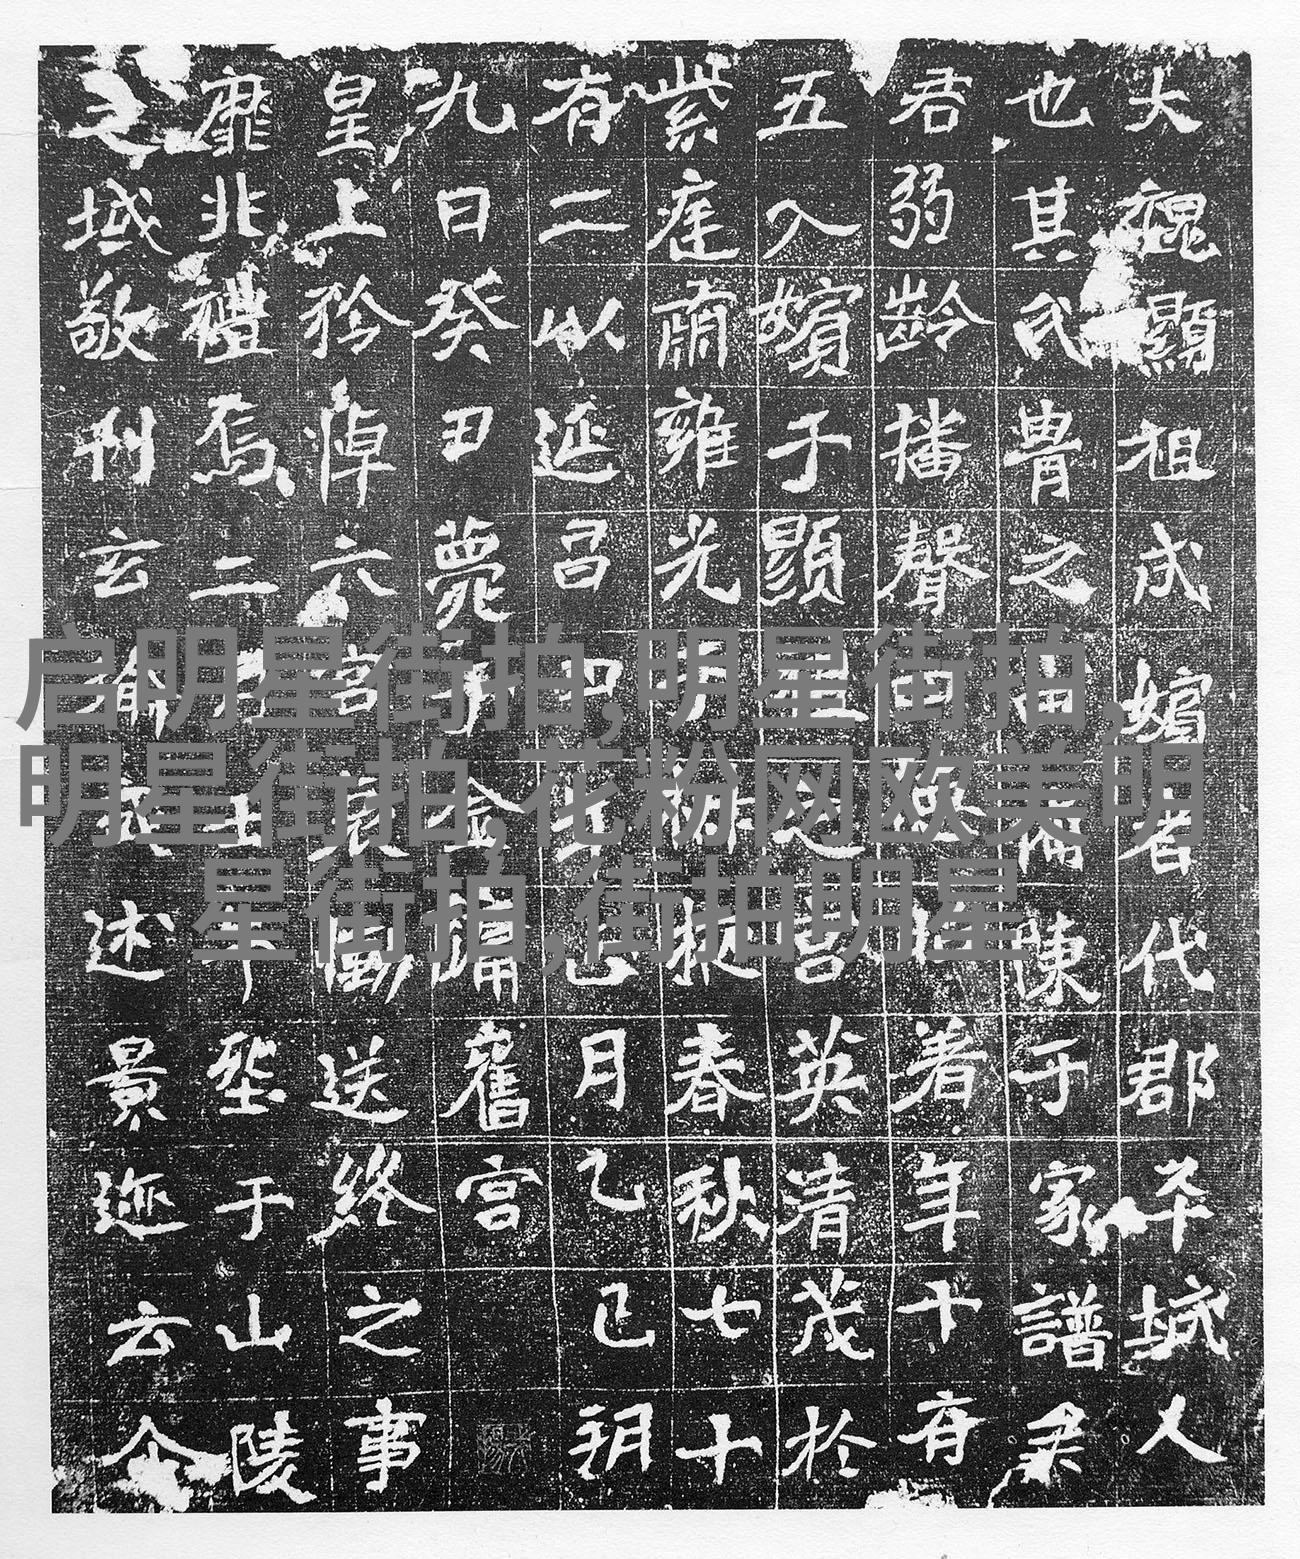 大魏顯祖成嬪者代郡平城人
也其氏冑之由備陳于家譜
君弱齡播聲著年十有
五入嬪于顯之宮英清茂於
紫庭肅雍光朝掖春秋七十
有二以延昌四年月乙巳朔
九日癸丑薨于金墉舊宮
皇上矜悼六宮哀慟送終之事
靡非禮焉二月于山陵
之域敬刊玄述景迹云
启明星街拍,明星街拍,
明星街拍,花粉网欧美明
星街拍,街拍明星